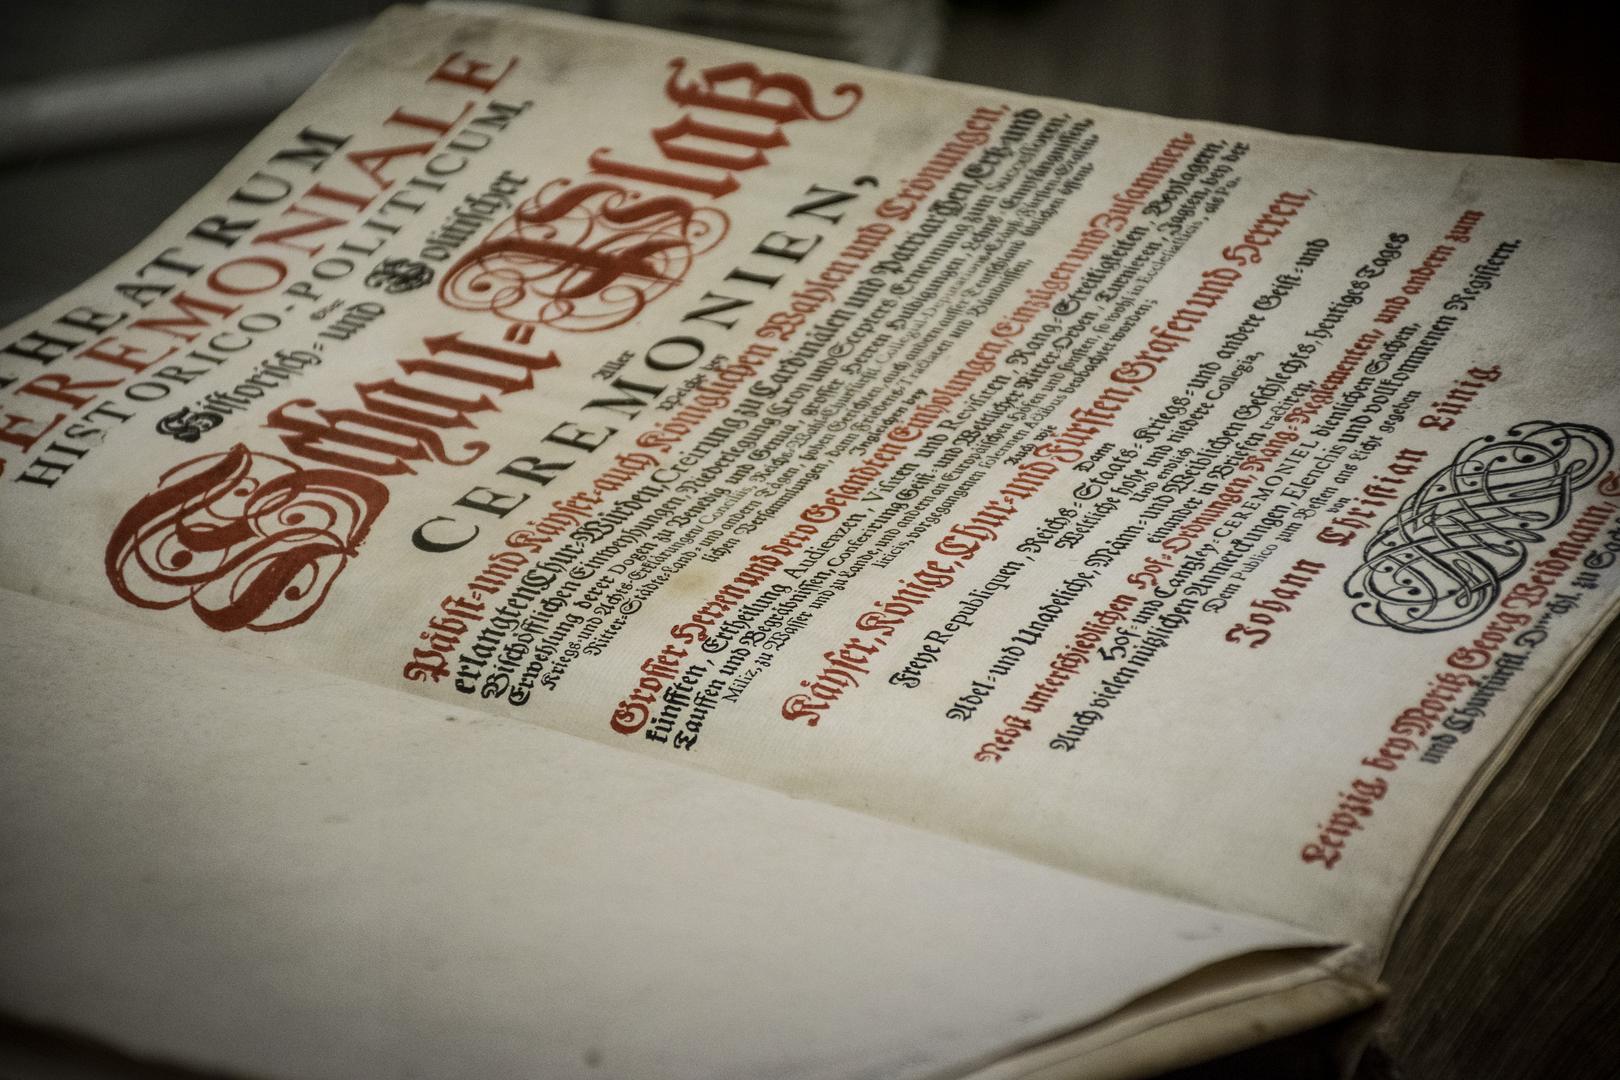 THEATRUM
CEREMONIALE
HISTORICO-POLITICUM,
Oder
Historisch- und Politischer
Schau-Platz
aller
CEREMONIEN,
Welche bey
Päbst- und Käyser- auch Königlichen Wahlen und Crönungen,
erlangten Chur-Würden, Creirung zu Cardinälen und Patriarchen, Ertz- und
Bischöfflichen Einweyhungen, Niederlegung Cron und Scepters, Ernennung zum Successoren,
Erwehlung derer Dogen zu Venedig und Genua, grosser Herren Huldigungen, Lehns-Empfängnissen,
Kriegs- und Achts-Erklärungen, Concilis, Reichs- Wahl- Churfürstl. Collegial-
Ritter- Städte- Land- und andern Tägen, hohen Gerichten, auch andern ausser Teutschland üblichen öffent-
lichen Versammlungen, dann Friedens-Tractaten und Bündnissen,
Ingleichen bey
Grosser Herren und dero Gesandten Einholungen, Einzügen und Zusammen-
künfften, Ertheilung Audienzen, Visiten und Revisiten, Rang-Streitigkeiten, Beylagern,
Tauffen und Begräbnissen, Conferirung Geist- und Weltlicher Ritter-Orden, Turnieren, Jagten, bey der
Miliz, zu Wasser und zu Lande, und anderen an Europäischen Höfen und sonsten, so wohl in Ecclesiasticis, als Po-
liticis vorgegangenen solennen Actibus beobachtet worden;
Auch wie
Käyser, Könige, Chur- und Fürsten, Grafen und Herren,
Dann
Freye Republiquen, Reichs- Staats- Kriegs- und andere Geist- und
Weltliche hohe und niedere Collegia,
Und endlich
Adel- und Unadeliche, Mann- und Weiblichen Geschlechts, heutiges Tages
einander in Briefen tractiren,
Nebst unterschiedlichen Hof-Ordnungen, Rang-Reglementen, und andern zum
Hof- und Cantzley-CEREMONIEL dienlichen Sachen,
Auch vielen nützlichen Anmerckungen, Elenchis und vollkommenen Registern.
Dem Publico zum Besten ans Licht gegeben
von
Johann Christian Lünig.
Leipzig, bey Moritz Georg Weidmann,
und Churfürstl. Durchl. zu